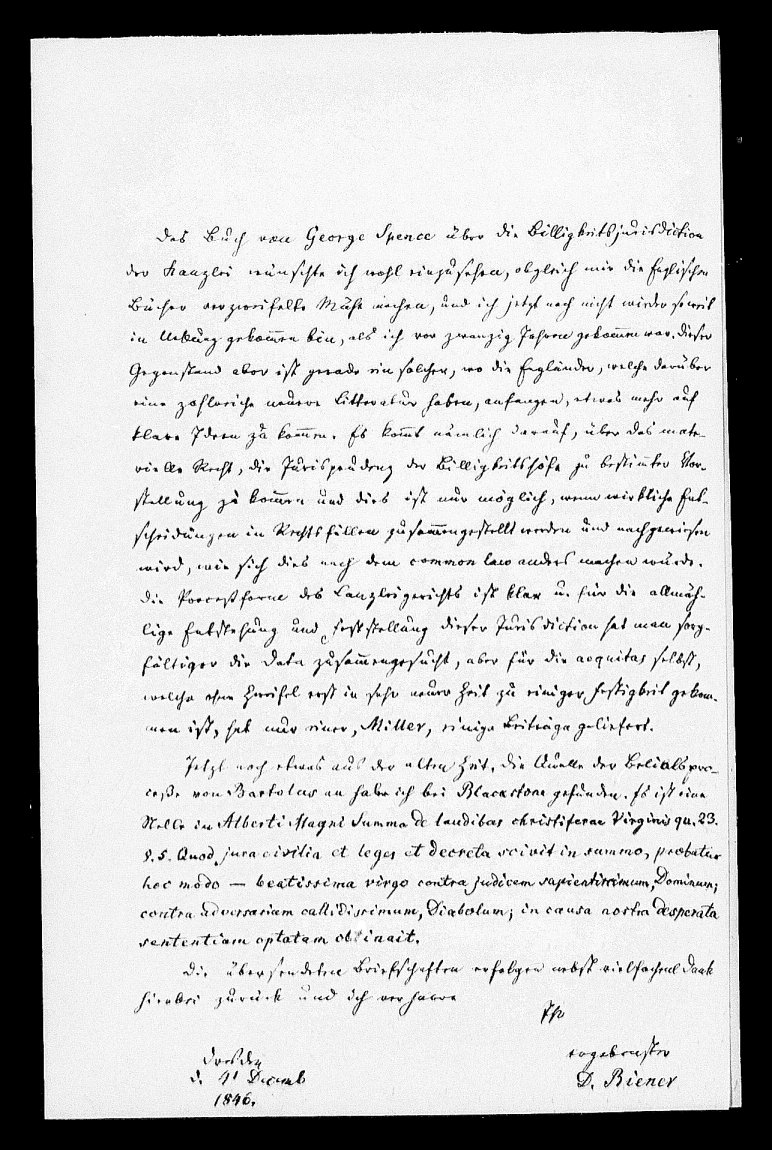 Das Buch von George Spence über die Billigkeitsjurisdiction
der Kanzlei wünschte ich wohl einzusehen, obgleich mir die Englischen
Bücher verzweifelte Mühe machen, und ich jetzt noch nicht wieder so weit
in Uebung gekommen bin, als ich vor zwanzig Jahren gekommen war. Dieser
Gegenstand aber ist gerade ein solcher, wo die Engländer, welche darüber
eine zahlreiche neuere Litteratur haben, anfangen, etwas mehr auf
klare Ideen zu kommen. Es kommt nämlich darauf, über das mate-
rielle Recht, die Jurisprudenz der Billigkeitshöfe zu bestimter Vor-
stellung zu kommen und dies ist nur möglich, wenn wirkliche Ent-
scheidungen in Rechtsfällen zusammengestellt werden und nachgewiesen
wird, wie sich dies nach dem common law anders machen würde.
Die Processform des Canzleigerichts ist klar u. für die allmäh-
lige Entstehung und Feststellung dieser Jurisdiction hat man sorg-
fältiger die Data zusammengesucht, aber für die aequitas selbst,
welche ohne Zweifel erst in sehr neuer Zeit zu einiger Festigkeit gekom-
men ist, hat nur einer, Miller, einige Beiträge geliefert.
Jetzt noch etwas aus der alten Zeit. Die Quelle der Belialsproc-
cesse von Bartolus an habe ich bei Blackstone gefunden. Es ist eine
Stelle in Alberti Magni Summa de laudibus christiferae Virginis qu. 23.
§. 5. Quod jura civilia et leges et decreta scivit in summo, probatur
hoc modo — beatissima virgo contra judicem sapientissimum, Dominum;
contra adversarium callidissimum, Diabolum; in causa nostra desperata
sententiam optatam obtinuit.
Die übersendeten Briefschaften erfolgen nebst vielfachem Dank
hierbei zurück und ich verharre
Ihr
Dresden
ergebenster
d. 4t Decemb
D. Biener
1846.